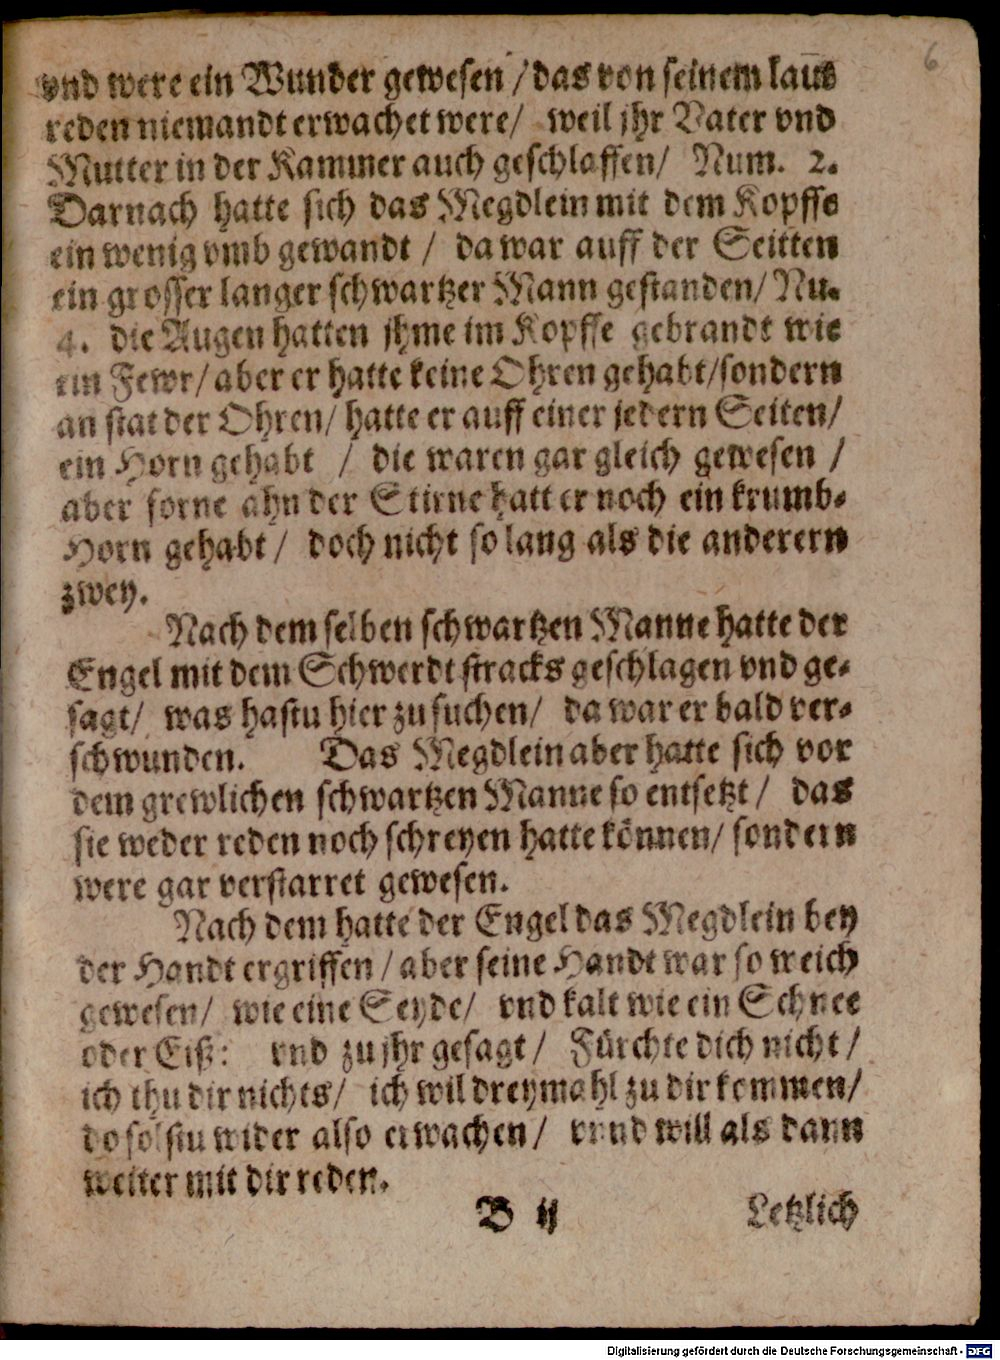 6
vnd were ein Wunder gewesen / das von seinem laūs
reden niemandt erwachet were / weil jhr Vater vnd
Mutter in der Kammer auch geschlaffen / Num. 2.
Darnach hatte sich das Megdlein mit dem Kopffe
ein wenig vmb gewandt / da war auff der Seitten
ein grosser langer schwartzer Mann gestanden / Nu.
4. die Augen hatten jhme im Kopffe gebrandt wie
ein Fewr / aber er hatte keine Ohren gehabt / sondern
an stat der Ohren / hatte er auff einer jedern Seiten /
ein Horn gehabt / die waren gar gleich gewesen /
aber forne ahn der Stirne hatt er noch ein krumb-
Horn gehabt / doch nicht so lang als die anderern
zwey.
Nach dem selben schwartzen Manne hatte der
Engel mit dem Schwerdt stracks geschlagen vnd ge-
sagt / was hastu hier zu suchen / da war er bald ver-
schwunden. Das Megdlein aber hatte sich vor
dem grewlichen schwartzen Manne so entsetzt / das
sie weder reden noch schreyen hatte können / sondern
were gar verstarret gewesen.
Nach dem hatte der Engel das Megdlein bey
der Handt ergriffen / aber seine Handt war so weich
gewesen / wie eine Seyde / vnd kalt wie ein Schnee
oder Eiß: vnd zu jhr gesagt / Fürchte dich nicht /
ich thu dir nichts / ich wil dreymahl zu dir kommen /
do solstu wider also erwachen / vnnd will als dann
weiter mit dir reden.
B ij Letzlich
Digitalisierung gefördert durch die Deutsche Forschungsgemeinschaft - DFG